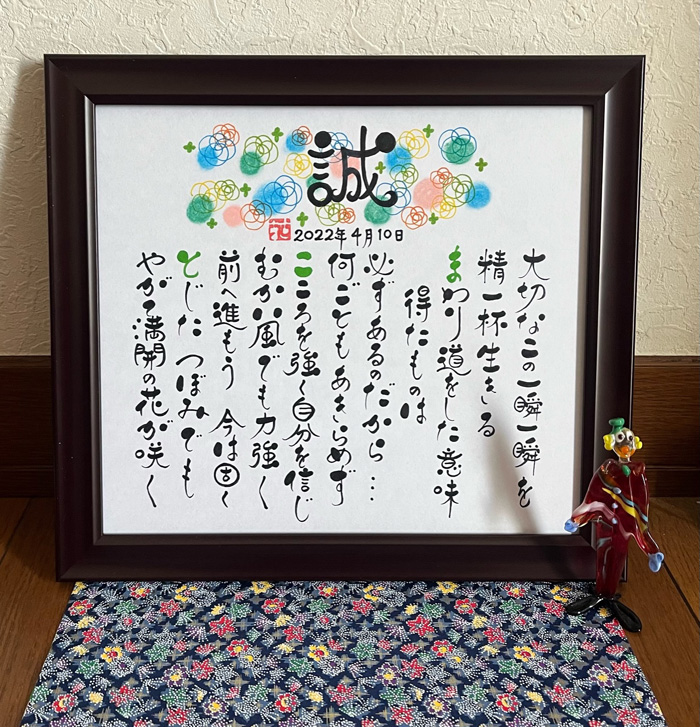 誠
2022年4月10日
大切なこの一瞬一瞬を
精一杯生きる
まわり道をした意味
得たものは
必ずあるのだから…
何ごともあきらめず
こころを強く自分を信じ
むかい風でも力強く
前へ進もう 今は固く
とじた つぼみでも
やがて満開の花が咲く